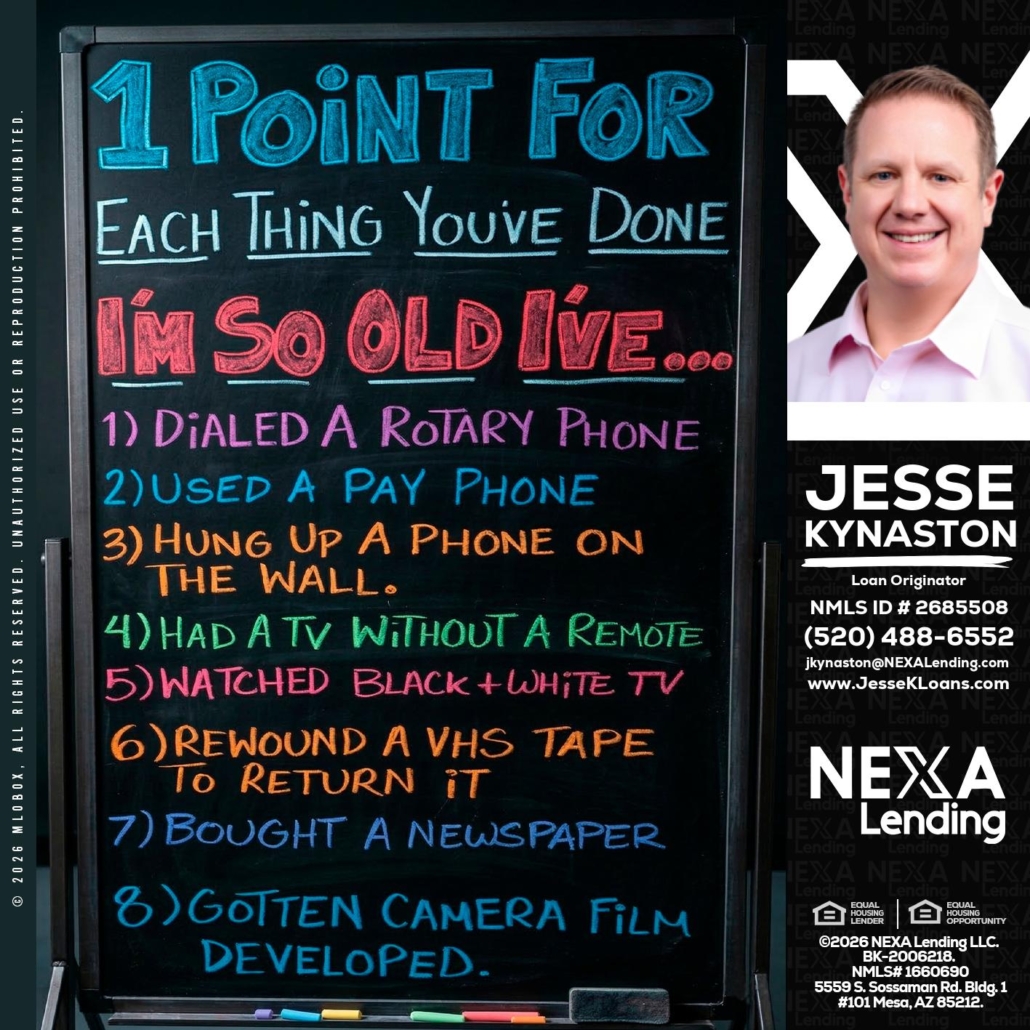 1 POiNT FOR
EACH THING YOU'VE DONE
I'M SO OLD I'VE...
1) DiALED A ROTARY PHONE
2) USED A PAY PHONE
3) HUNG UP A PHONE ON
THE WALL.
4) HAD A TV WiTHOUT A REMOTE
5) WATCHED BLACK + WHiTE TV
6) REWOUND A VHS TAPE
TO RETURN iT
7) BOUGHT A NEWSPAPER
8) GOTTEN CAMERA FiLM
DEVELOPED.
© 2026 MLOBOX, ALL RIGHTS RESERVED. UNAUTHORIZED USE OR REPRODUCTION PROHIBITED.
JESSE
KYNASTON
Loan Originator
NMLS ID # 2685508
(520) 488-6552
jkynaston@NEXALending.com
www.JesseKLoans.com
NEXA
Lending
EQUAL
HOUSING
LENDER
EQUAL
HOUSING
OPPORTUNITY
©2026 NEXA Lending LLC.
BK-2006218.
NMLS# 1660690
5559 S. Sossaman Rd. Bldg. 1
#101 Mesa, AZ 85212.